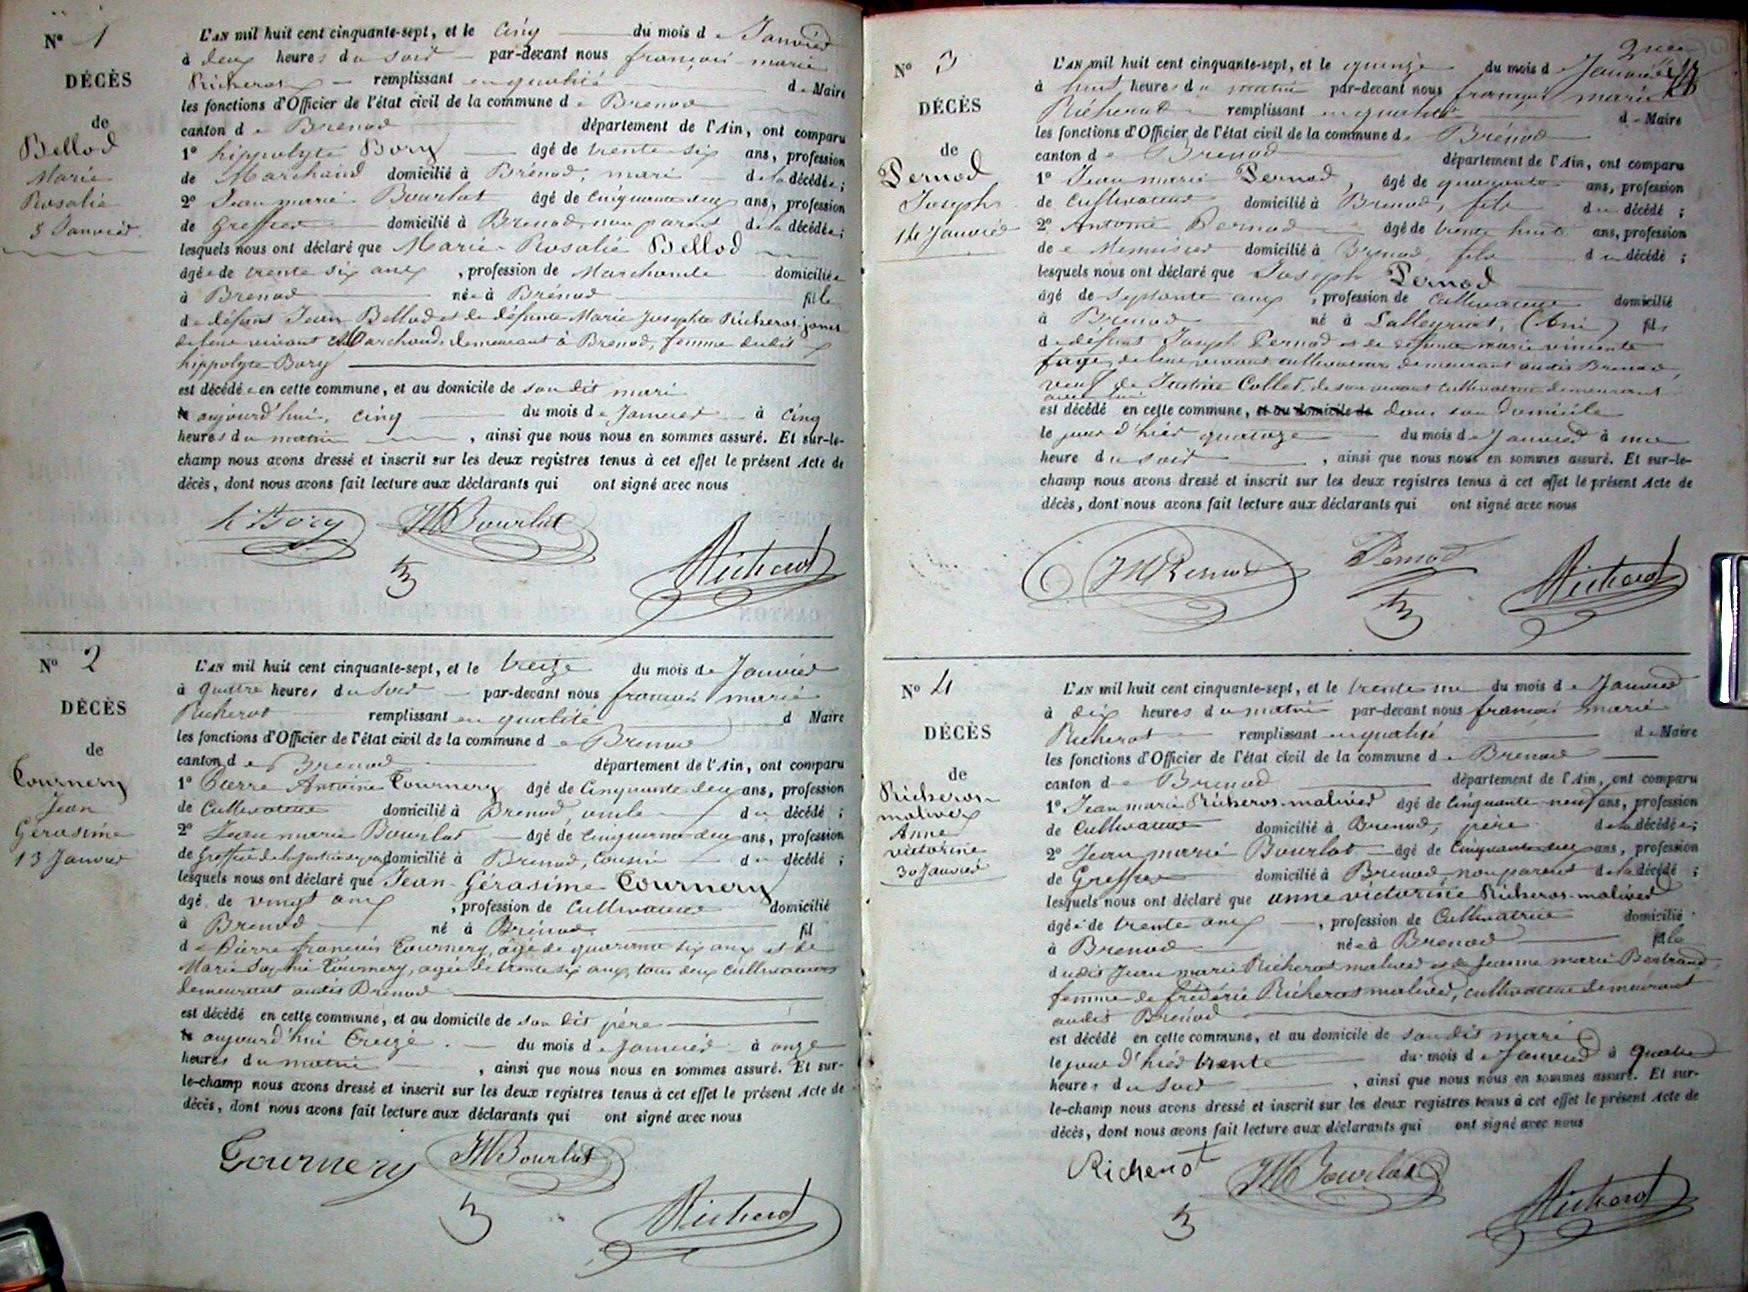 N° 1
DÉCÈS
de
Bellod
Marie
Rosalie
5 Janvier
L'AN mil huit cent cinquante-sept, et le cinq du mois de Janvier
à deux heures du soir par-devant nous françois marie
Richerot remplissant en qualité de Maire
les fonctions d'Officier de l'état civil de la commune de Brenod
canton de Brenod département de l'Ain, ont comparu
1° hippolyte Bory âgé de trente six ans, profession
de Marchand domicilié à Brénod, mari de la décédée;
2° Jean marie Bourlot âgé de cinquante deux ans, profession
de Greffier domicilié à Brenod, non parent de la décédée;
lesquels nous ont déclaré que Marie-Rosalie Bellod
âgée de trente six ans, profession de Marchande domiciliée
à Brenod née à Brénod fille
de défunt Jean Bellod et de défunte Marie Josephte Richerot
de leur vivant Marchands demeurant à Brenod, femme dudit
hippolyte Bory
est décédée en cette commune, et au domicile de son dit mari
aujourd'hui, cinq du mois de Janvier à cinq
heures du matin, ainsi que nous nous en sommes assuré. Et sur-le-
champ nous avons dressé et inscrit sur les deux registres tenus à cet effet le présent Acte de
décès, dont nous avons fait lecture aux déclarants qui ont signé avec nous
h. Bory JM Bourlot
Richerot
N° 2
DÉCÈS
de
Tournery
Jean
Gérasime
13 Janvier
L'AN mil huit cent cinquante-sept, et le treize du mois de Janvier
à quatre heures du soir par-devant nous françois marie
Richerot remplissant en qualité d Maire
les fonctions d'Officier de l'état civil de la commune de Brenod
canton de Brenod département de l'Ain, ont comparu
1° Pierre Antoine Tournery âgé de cinquante deux ans, profession
de Cultivateur domicilié à Brenod, oncle du décédé;
2° Jean marie Bourlot âgé de cinquante deux ans, profession
de Greffier de la justice de paix domicilié à Brenod, cousin du décédé;
lesquels nous ont déclaré que Jean-Gérasime Tournery
âgé de vingt ans, profession de Cultivateur domicilié
à Brenod né à Brenod fil
de Pierre françois Tournery, âgé de quarante six ans et de
Marie Sophie Tournery, agée de trente six ans, tous deux cultivateurs
demeurant audit Brenod
est décédé en cette commune, et au domicile de son dit père
aujourd'hui treize du mois de Janvier à onze
heures du matin, ainsi que nous nous en sommes assuré. Et sur-
le-champ nous avons dressé et inscrit sur les deux registres tenus à cet effet le présent Acte de
décès, dont nous avons fait lecture aux déclarants qui ont signé avec nous
Tournery JM Bourlot
Richerot
N° 3
DÉCÈS
de
Pernod
Joseph
14 Janvier
L'AN mil huit cent cinquante-sept, et le quinze du mois de Janvier
à huit heures du matin par-devant nous françois marie
Richerot remplissant en qualité de Maire
les fonctions d'Officier de l'état civil de la commune de Brénod
canton de Brenod département de l'Ain, ont comparu
1° Jean marie Pernod, âgé de quarante ans, profession
de Cultivateur domicilié à Brenod, fils du décédé;
2° Antoine Pernod âgé de trente huit ans, profession
de Menuisier domicilié à Brenod, fils du décédé;
lesquels nous ont déclaré que Joseph Pernod
âgé de septante ans, profession de Cultivateur domicilié
à Brenod né à Lalleyriat, (Ain) fils
de défunt Joseph Pernod et de défunte marie vincente
fage, de leur vivant cultivateurs demeurant audit Brenod,
veuf de Justine Collet, de son vivant cultivatrice demeurant
avec lui
est décédé en cette commune, et au domicile de dans son domicile
le jour d'hier quatorze du mois de Janvier à une
heure du soir, ainsi que nous nous en sommes assuré. Et sur-le-
champ nous avons dressé et inscrit sur les deux registres tenus à cet effet le présent Acte de
décès, dont nous avons fait lecture aux déclarants qui ont signé avec nous
JM Pernod Pernod
Richerot
N° 4
DÉCÈS
de
Richerot-
malivert
Anne
victorine
30 Janvier
L'AN mil huit cent cinquante-sept, et le trente un du mois de Janvier
à dix heures du matin par-devant nous françois marie
Richerot remplissant en qualité de Maire
les fonctions d'Officier de l'état civil de la commune de Brenod
canton de Brenod département de l'Ain, ont comparu
1° Jean marie Richerot-malivert âgé de cinquante neuf ans, profession
de Cultivateur domicilié à Brenod, père de la décédée;
2° Jean marie Bourlot âgé de cinquante deux ans, profession
de Greffier domicilié à Brenod, non parent de la décédé;
lesquels nous ont déclaré que anne victorine Richerot-malivert
âgée de trente ans, profession de Cultivatrice domicilié
à Brenod née à Brenod fille
dudit Jean marie Richerot malivert et de Jeanne marie Bertrand,
femme de frédéric Richerot malivert, cultivateur demeurant
audit Brenod
est décédé en cette commune, et au domicile de son dit mari
le jour d'hier trente du mois de Janvier à quatre
heures du soir, ainsi que nous nous en sommes assuré. Et sur-
le-champ nous avons dressé et inscrit sur les deux registres tenus à cet effet le présent Acte de
décès, dont nous avons fait lecture aux déclarants qui ont signé avec nous
Richerot JM Bourlot
Richerot